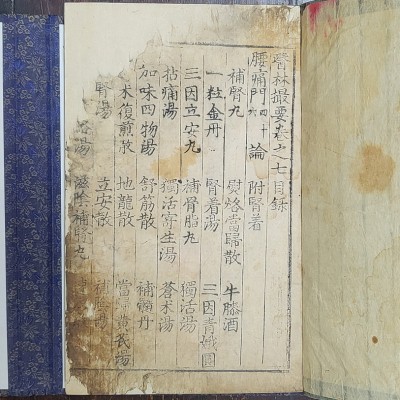 醫林撮要卷之七目錄
腰痛門四十六 論 附腎着
補腎丸 熨烙當歸散 牛膝酒
一粒金丹 腎着湯 三因青娥圓
三因立安丸 補骨脂丸 獨活湯
拈痛湯 獨活寄生湯 蒼朮湯
加味四物湯 舒筋散 補髓丹
朮復煎散 地龍散 當 湯
腎湯 立安散 補
湯 滋陰補 丸